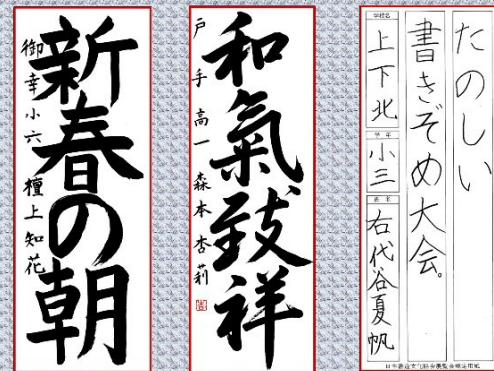 新春の朝
御幸小六 檀上知花
和氣致祥
戸手高一 森本杏莉
たのしい
書きぞめ大会。
学校名
上下北
学年
小三
氏名
右代谷夏帆